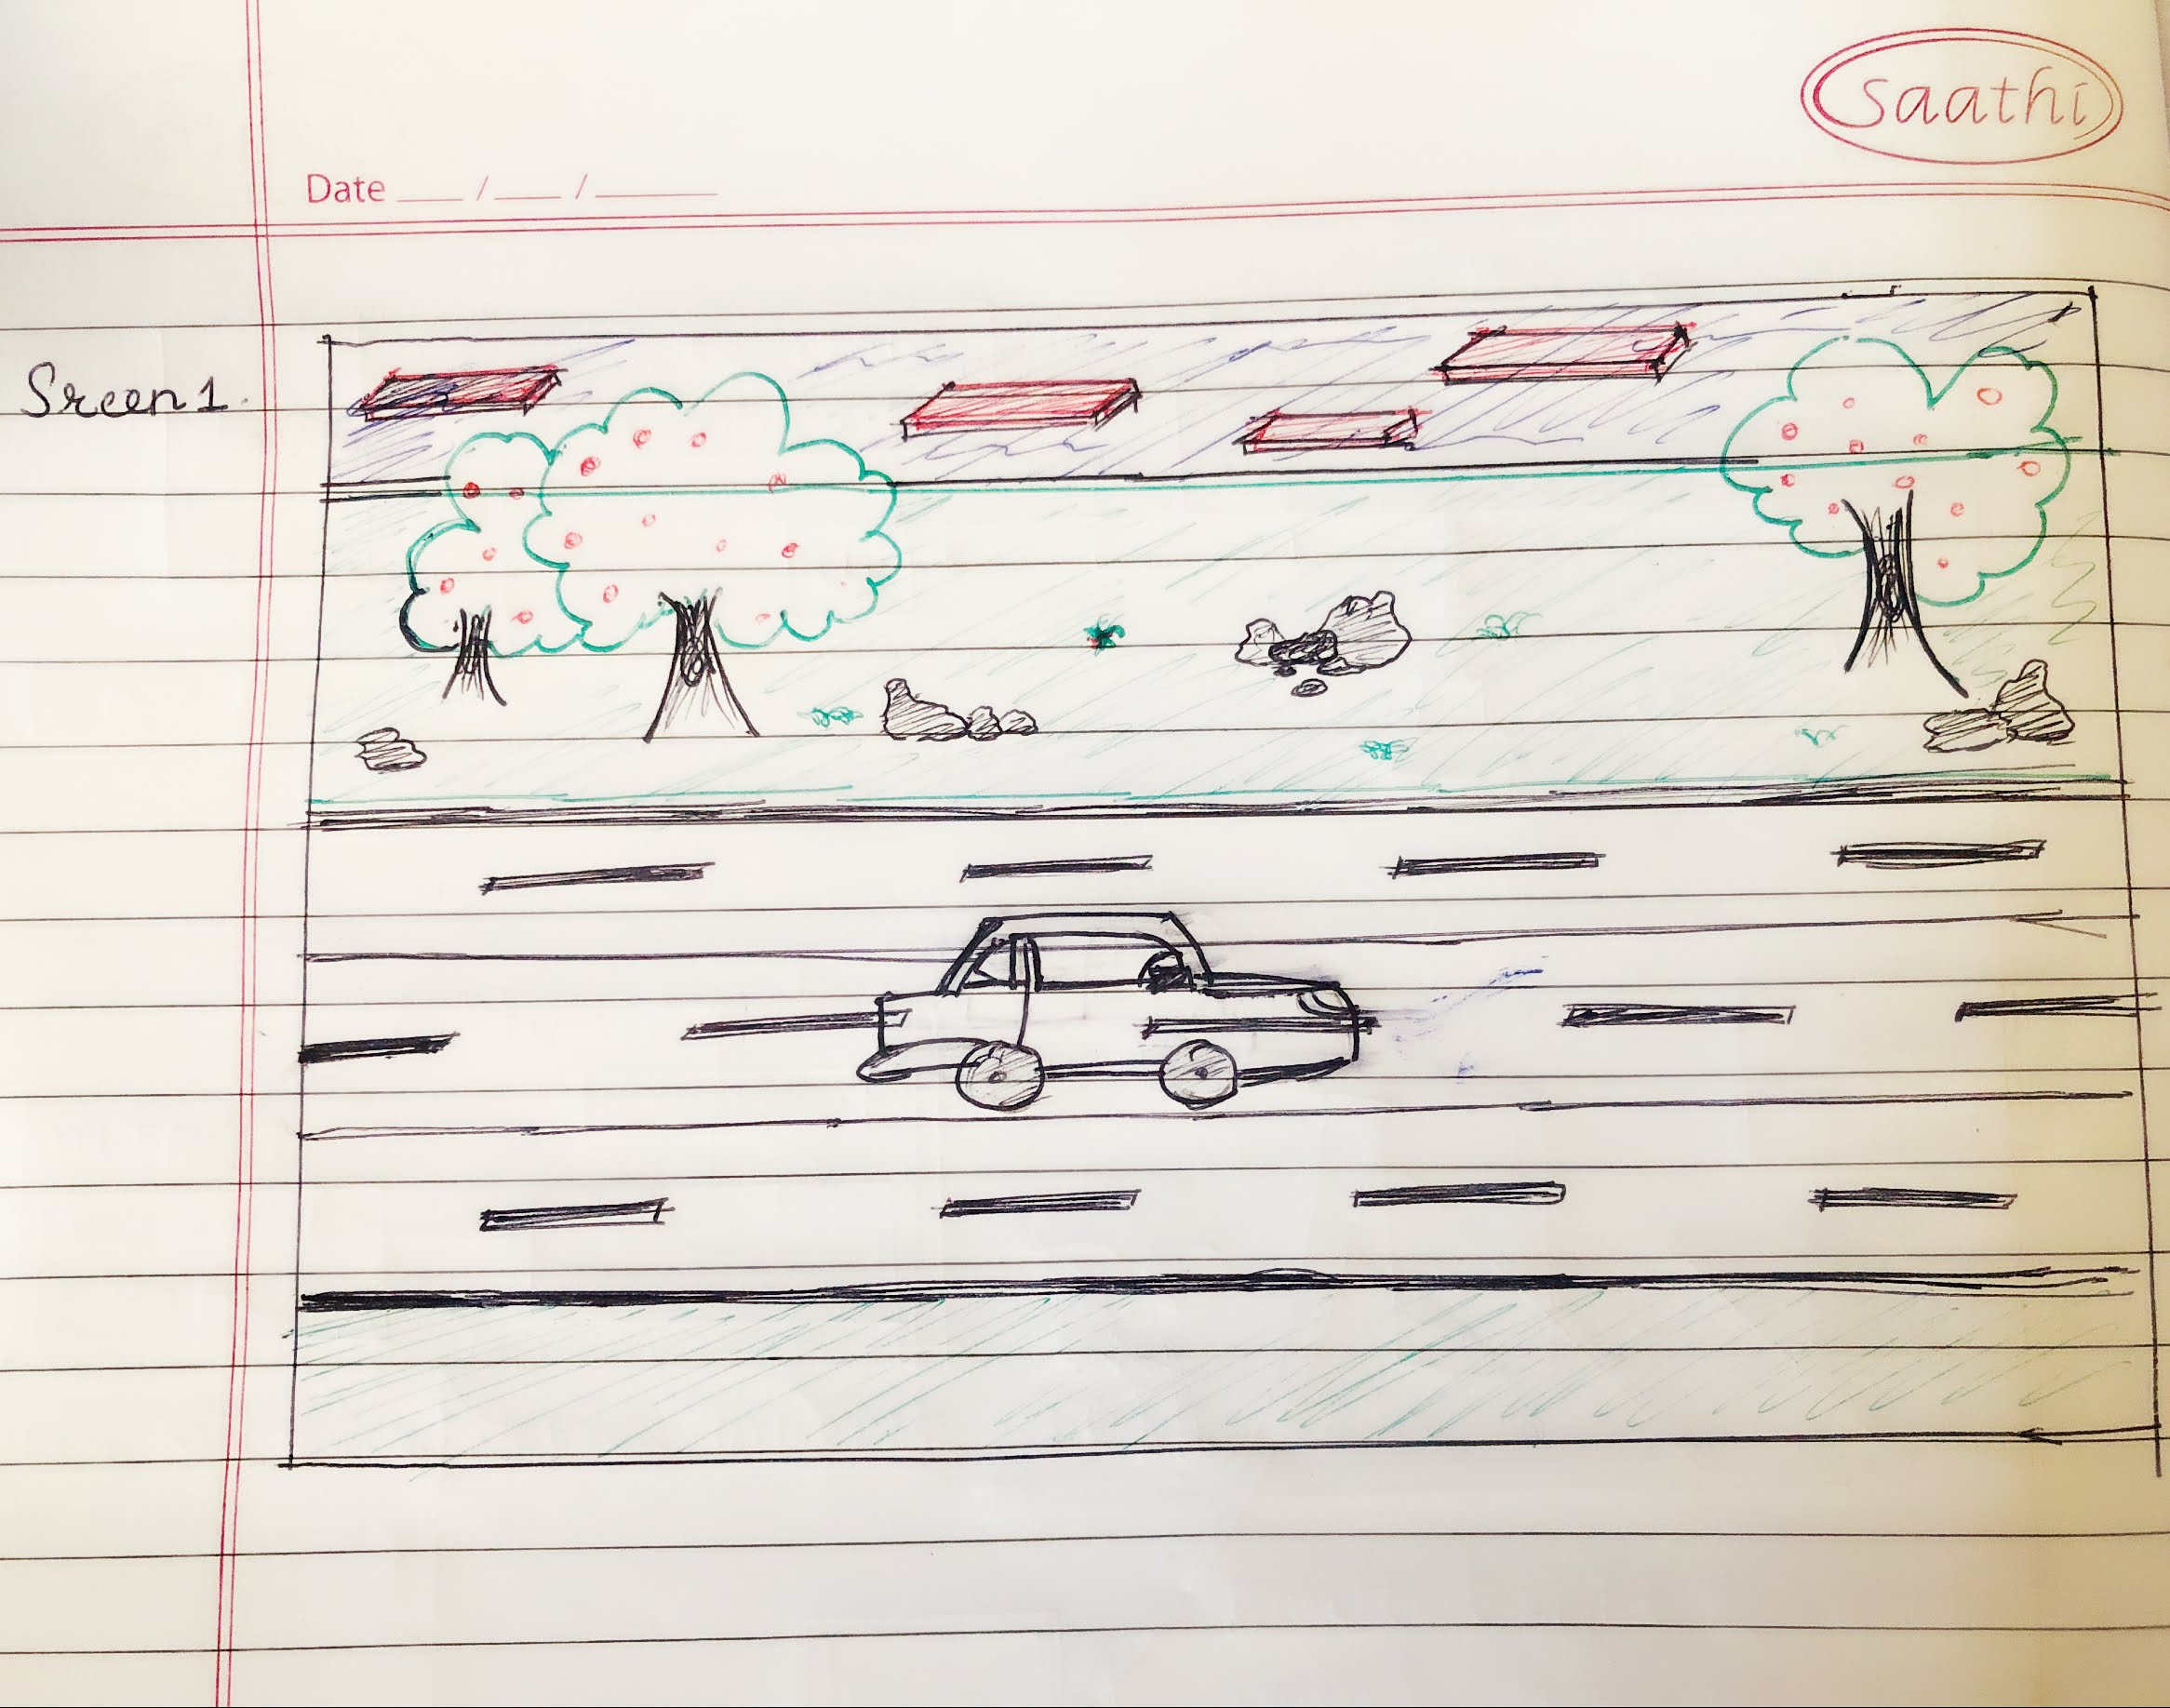 Saathi
Date __ / __ / ____
Sreen 1.